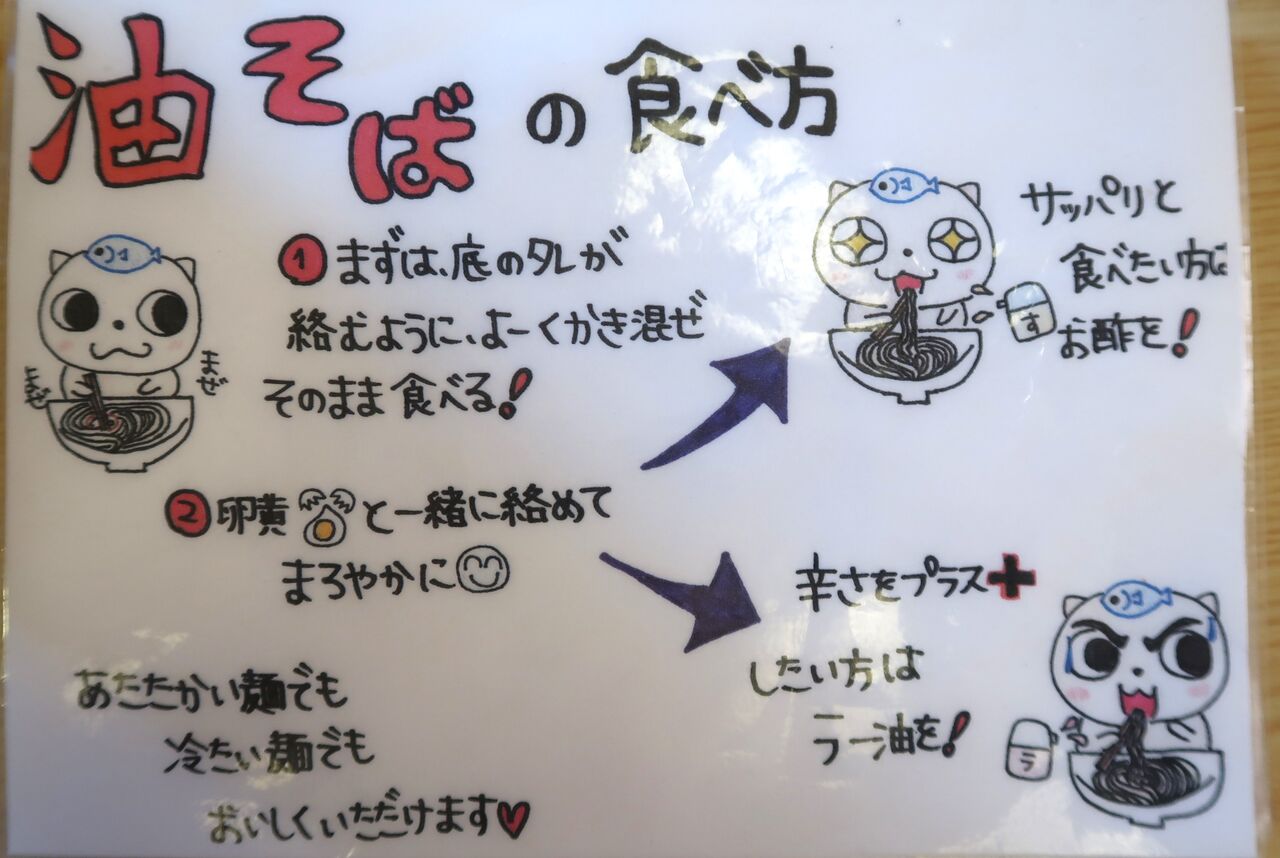 油そばの食べ方
① まずは、底のタレが
絡むように、よーくかき混ぜ
そのまま食べる!
まぜ
まぜ
② 卵黄と一緒に絡めて
まろやかに
サッパリと
食べたい方は
お酢を!
す
辛さをプラス+
したい方は
ラー油を!
ラ
あたたかい麺でも
冷たい麺でも
おいしくいただけます♥